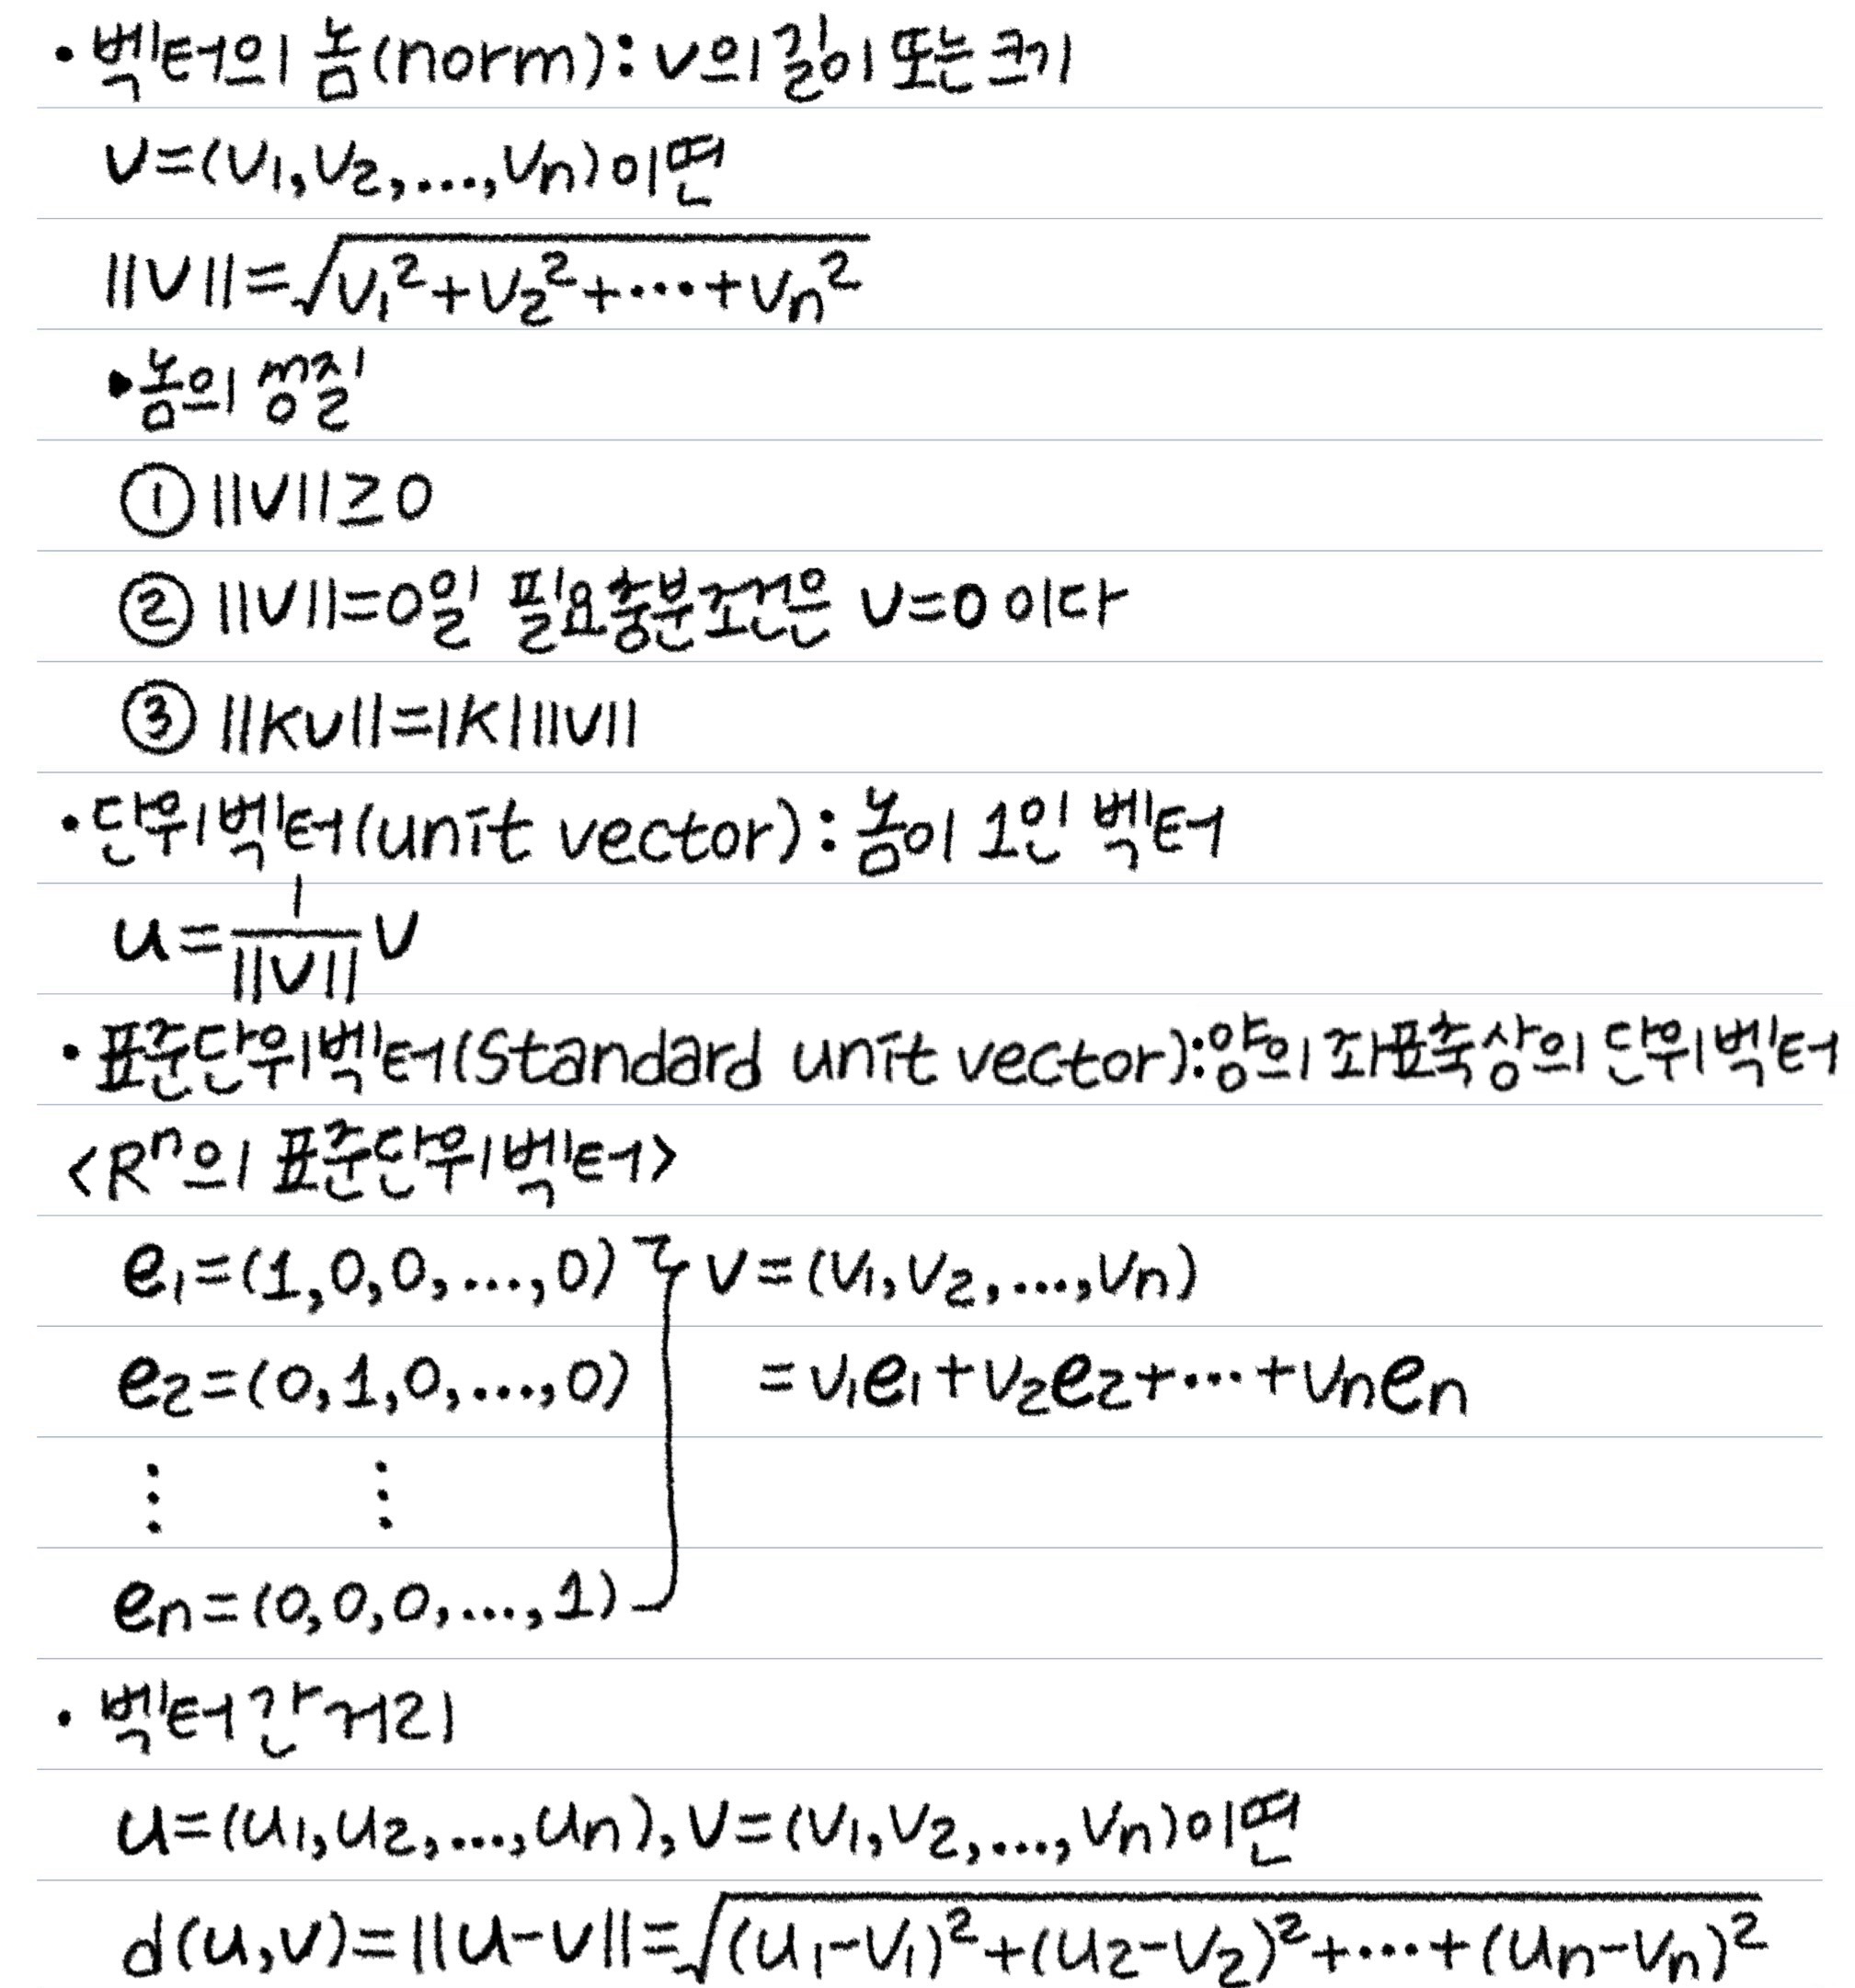 • 벡터의 놈(norm): v의 길이 또는 크기
v=(v₁,v₂,...,vₙ)이면
||v||=√(v₁²+v₂²+⋯+vₙ²)
• 놈의 성질
① ||v||≥0
② ||v||=0일 필요충분조건은 v=0이다
③ ||kv||=|k|||v||
• 단위벡터(unit vector): 놈이 1인 벡터
u=1/||v|| v
• 표준단위벡터(Standard unit vector):양의 좌표축상의 단위벡터
<Rⁿ의 표준단위벡터>
e₁=(1,0,0,...,0) v=(v₁,v₂,...,vₙ)
e₂=(0,1,0,...,0) =v₁e₁+v₂e₂+⋯+vₙeₙ
⋮ ⋮
eₙ=(0,0,0,...,1)
• 벡터 간 거리
u=(u₁,u₂,...,uₙ),v=(v₁,v₂,...,vₙ)이면
d(u,v)=||u-v||=√((u₁-v₁)²+(u₂-v₂)²+⋯+(uₙ-vₙ)²)